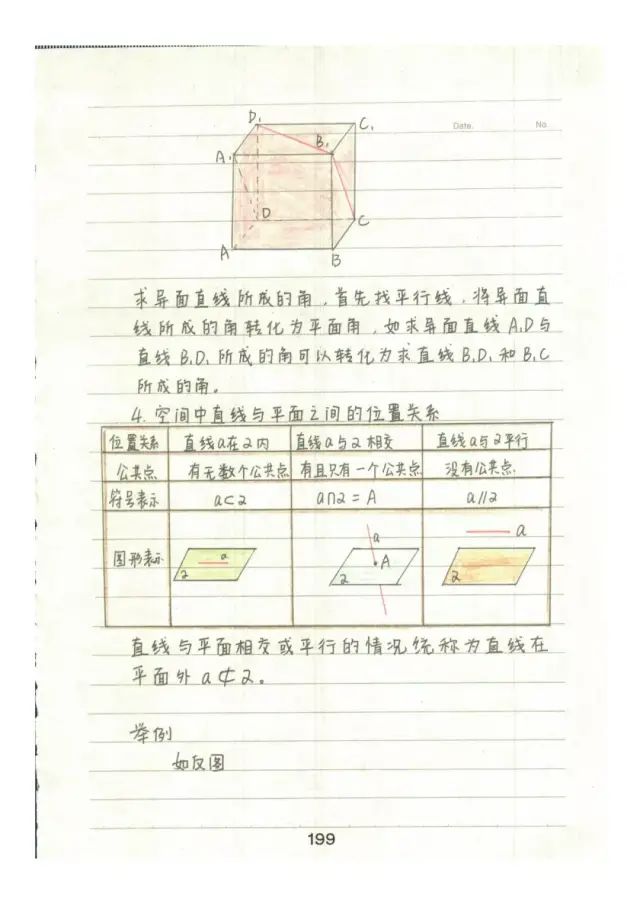 D₁
C₁
Date.
No
B₁
A₁
D
C
A
B
求异面直线所成的角，首先找平行线，将异面直
线所成的角转化为平面角，如求异面直线A₁D与
直线B₁D₁所成的角可以转化为求直线B₁D₁和B₁C
所成的角。
4. 空间中直线与平面之间的位置关系
位置关系 直线a在2内 直线a与2相交 直线a与2平行
公共点 有无数个公共点 有且只有一个公共点 没有公共点.
符号表示 a⊂2 a∩2=A a//2
图形表示
a
2
a
A
2
a
2
直线与平面相交或平行的情况统称为直线在
平面外a⊄2。
举例
如反图
199